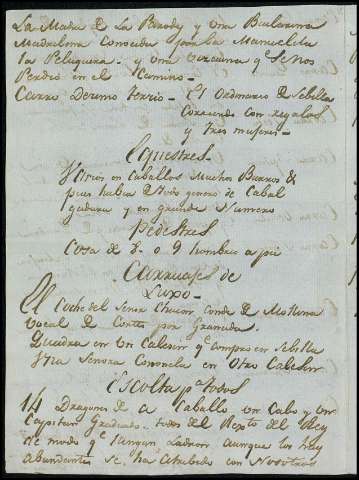 La Madre de La Brady y una Bailarina
Madrileña Conocida por la Manuelita
la Peluquera. y una vezcaina qe Se nos
Perdio en el Camino.
Carro Decimo tercio. El Ordinario de Sebilla
Corriendo con regalos
y tres mujeres.
Equestres.
Varios en Caballos Muchos Burros &
pues habia de todo genero de Cabal
gaduras y en grande Numero
Pedestres
Cosa de 8. o 9 hombres a pie
Carruajes de
Luxo.
El Coche del Senor Conde de
Vocal de Cortes por Granada.
Quadra en un Calesin qe compro en Sebilla
Senora Coronela en Otro Calesin
Escolta pa todos
14 Dragones de a Caballo un Cabo y un
Capitan Graduado. todos del Regto del Rey
de modo qe Ladron aunque los hay
abundantes se ha atrebido con Nosotros